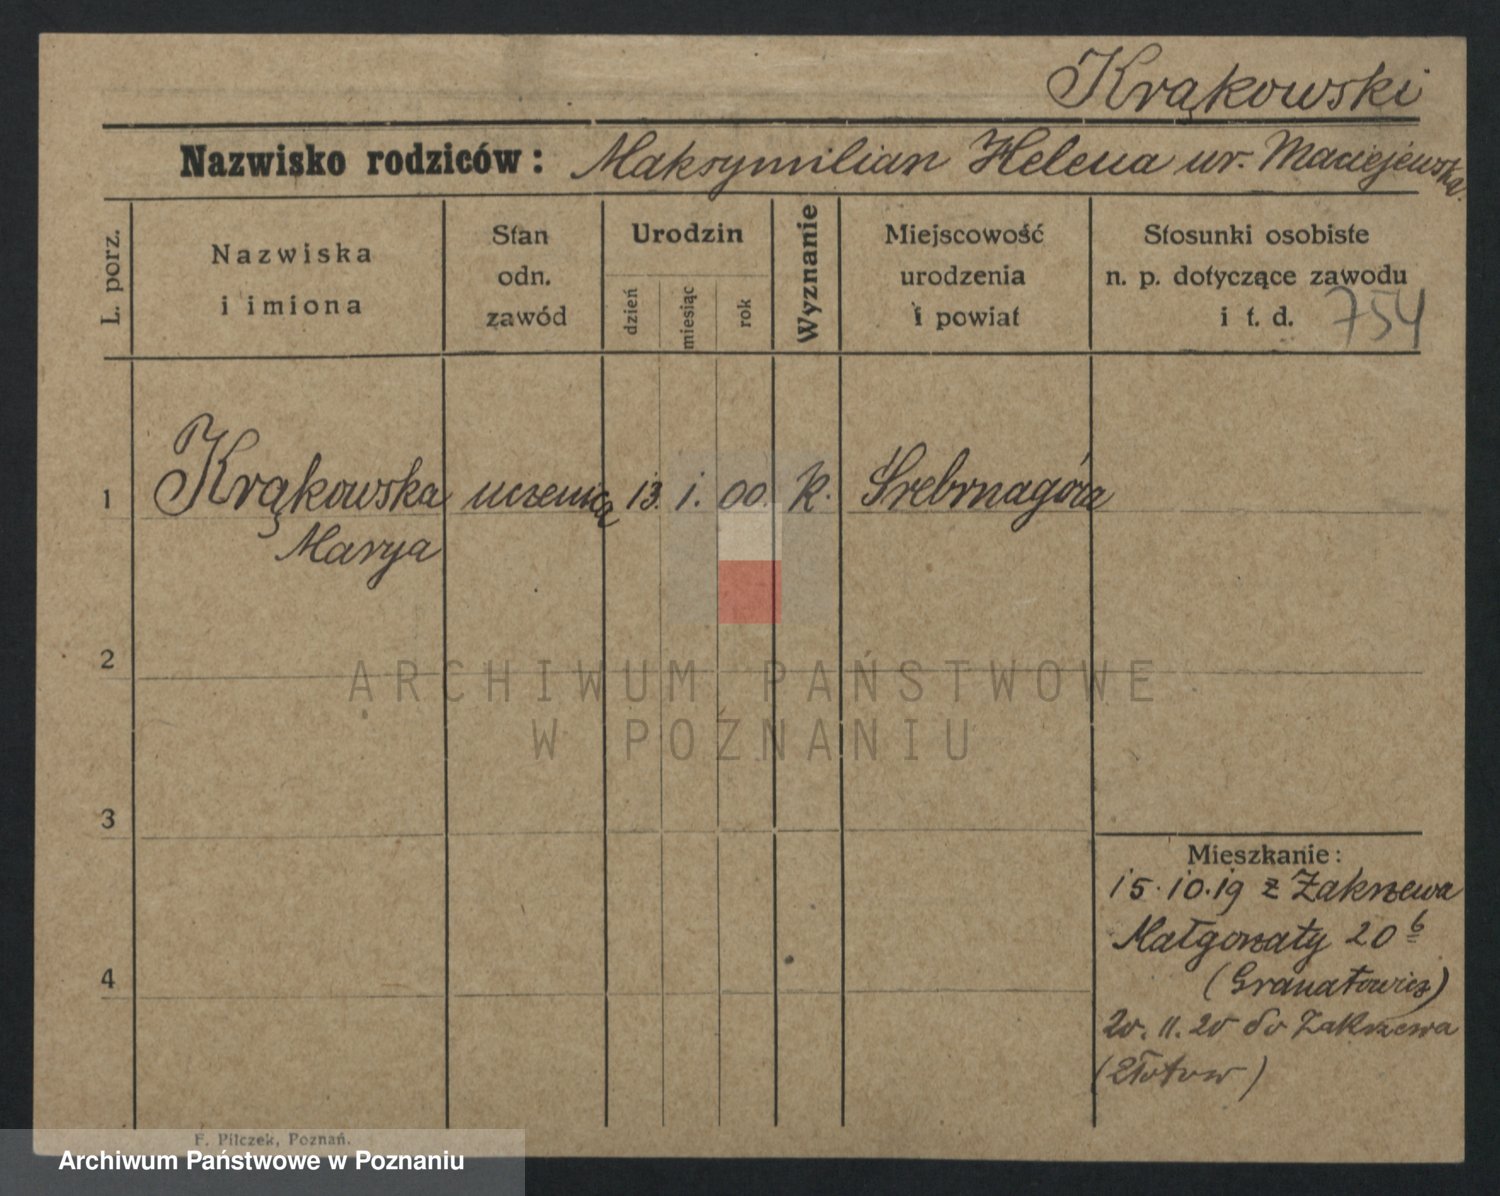 Krąkowski
Nazwisko rodziców: Maksymilian Helena ur. Maciejewska.
L. porz.
Nazwiska
i imiona
Stan
odn.
zawód
Urodzin
dzień
miesiąc
rok
Wyznanie
Miejscowość
urodzenia
i powiat
Stosunki osobiste
n. p. dotyczące zawodu
i t. d. 754
1 Krąkowska uczenica 13. 1. 00. k. Srebrnagóra
Marya
2
ARCHIWUM PAŃSTWOWE
W POZNANIU
3
Mieszkanie:
15.10.19 z Zakrzewa
Małgorzaty 20 b
(Granatowicz)
4
20. 11. 20 do Zakrzewa
(Złotow)
F. Pilczek, Poznań.
Archiwum Państwowe w Poznaniu